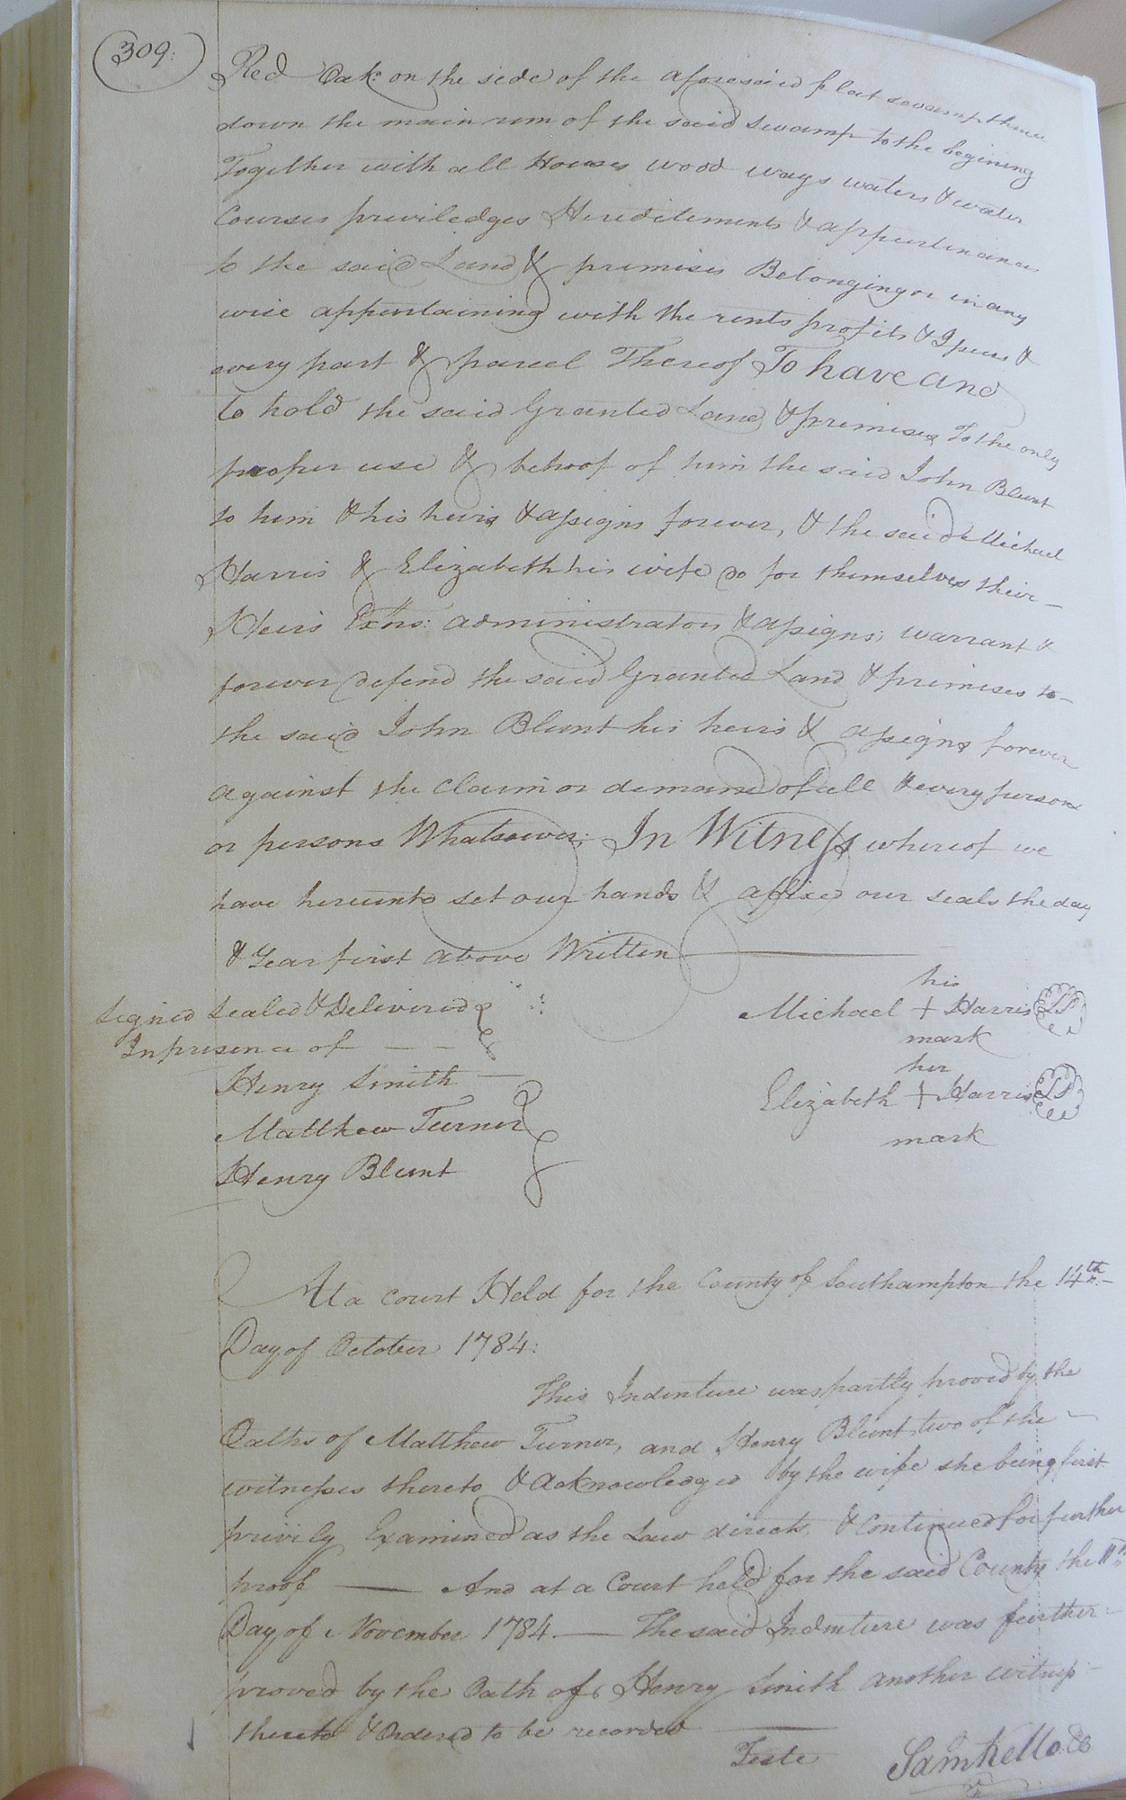 309
Red Oak on the side of the aforesaid flat swamp thence
down the main run of the said Swamp to the begining
Together with all Houses wood ways waters & water
Courses priviledges Hereditements & appurtinances
to the said Land & premises Belonging or in any
wise appertaining with the rents profits & Issues &
every part & parcel Thereof To have and
to hold the said Granted Land & premises To the only
proper use & behoof of him the said John Blunt
to him & his heirs & assigns forever, & the said Michael
Harris & Elizabeth his wife do for themselves their
Heirs Exrs: administrators & assigns, warrant &
forever defend the said Granted Land & premises to
the said John Blunt his heirs & assigns forever
against the claim or demand of all & every person
or persons Whatsoever; In Witness whereof we
have hereunto set our hands & afixed our seals the day
& Year first above Written
Signed Sealed & Delivered
In presence of
Henry Smith
Matthew Turner
Henry Blunt
his
Michael + Harris LS
mark
her
Elizabeth + Harris LS
mark
At a court Held for the County of Southampton the 14th
Day of October 1784:
This Indenture was partly proved by the
Oaths of Matthew Turner, and Henry Blunt two of the
witnesses thereto & acknowledged by the wife she being first
privily Examined as the Law directs & Continued for further
proof — And at a Court held for the said County the 11th
Day of November 1784 — The said Indenture was further
proved by the Oath of Henry Smith another witness
thereto & Ordered to be recorded
Teste Sam Kello